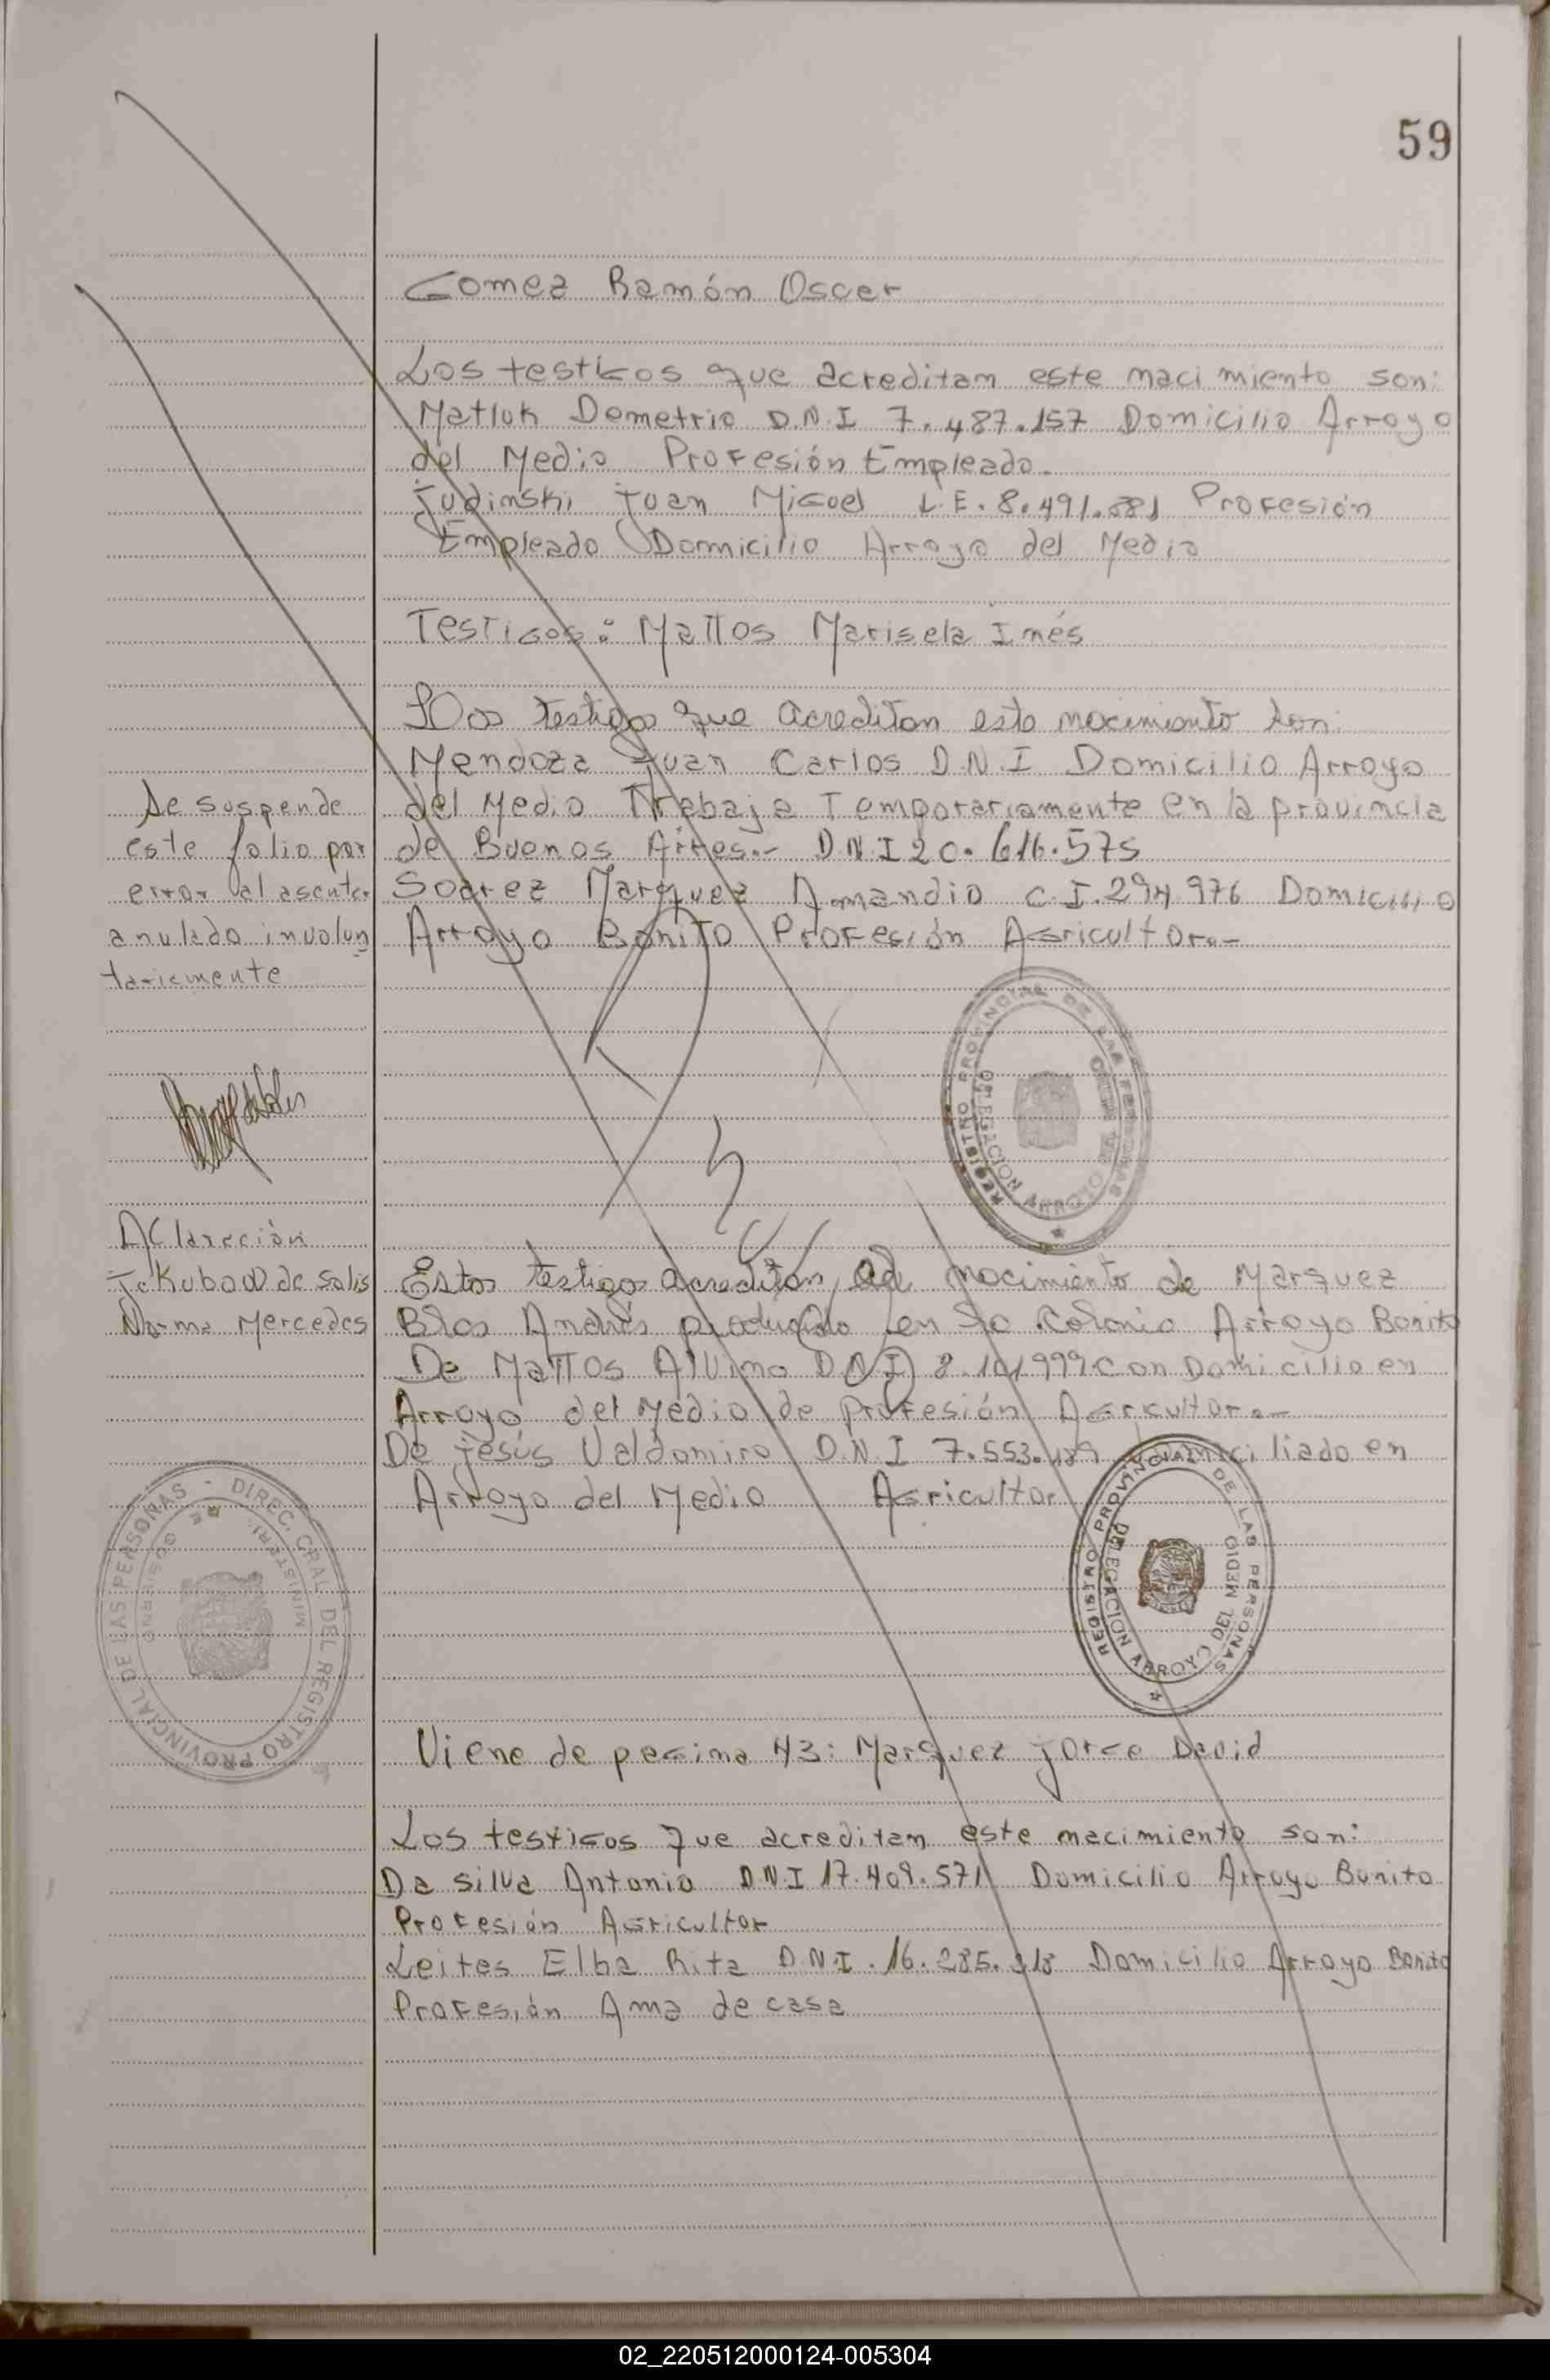 59
Gomez Ramón Oscar
Los testigos que acreditam este macimiento son:
Matluk Demetrio D.N.I 7.487.157 Domicilio Arroyo
del Medio Profesión Empleado.
Judinski Juan Miguel L.E. 8.491. Profesión
Empleado Domicilio Arroyo del Medio
Testigos: Mattos Marisela Inés
Los testigos que acreditan este nacimiento son:
Mendoza Juan Carlos D.N.I Domicilio Arroyo
del Medio Trabaja Temporariamente en la provincia
de Buenos Aires.- D N I 20.616.575
Soarez Marquez Amandio C.I. 294.976 Domicilio
Arroyo Bonito Profesión Agricultor.-
Se suspende
este folio por
error al asentar
anulado involun
tariamente
REGISTRO PROVINCIAL DE LAS PERSONAS
DELEGACION ARROYO
Aclaración
Jakubow de Solis
Norma Mercedes
Estos testigos acreditan el nacimiento de Marquez
Blas Andrés producido en la Colonia Arroyo Bonito
De Mattos Alvino D N I 8.101999 con Domicilio en
Arroyo del Medio de profesión Agricultor.-
De Jesús Valdomiro D.N.I 7.553.189 Domiciliado en
Arroyo del Medio Agricultor
DIREC. GRAL DEL REGISTRO PROVINCIAL DE LAS PERSONAS -
MINISTERI DE GOBIERNO
REGISTRO PROVINCIAL DE LAS PERSONAS
DELEGACION ARROYO DEL MEDIO
Viene de pagina 43: Marquez Jorge David
Los testigos que acreditam este macimiento son:
Da Silva Antonio D.N.I 17.409.571 Domicilio Arroyo Bonito
Profesión Agricultor
Leites Elba Rita D.N.I. 16.285.318 Domicilio Arroyo Bonito
Profesión Ama de casa
02_220512000124-005304